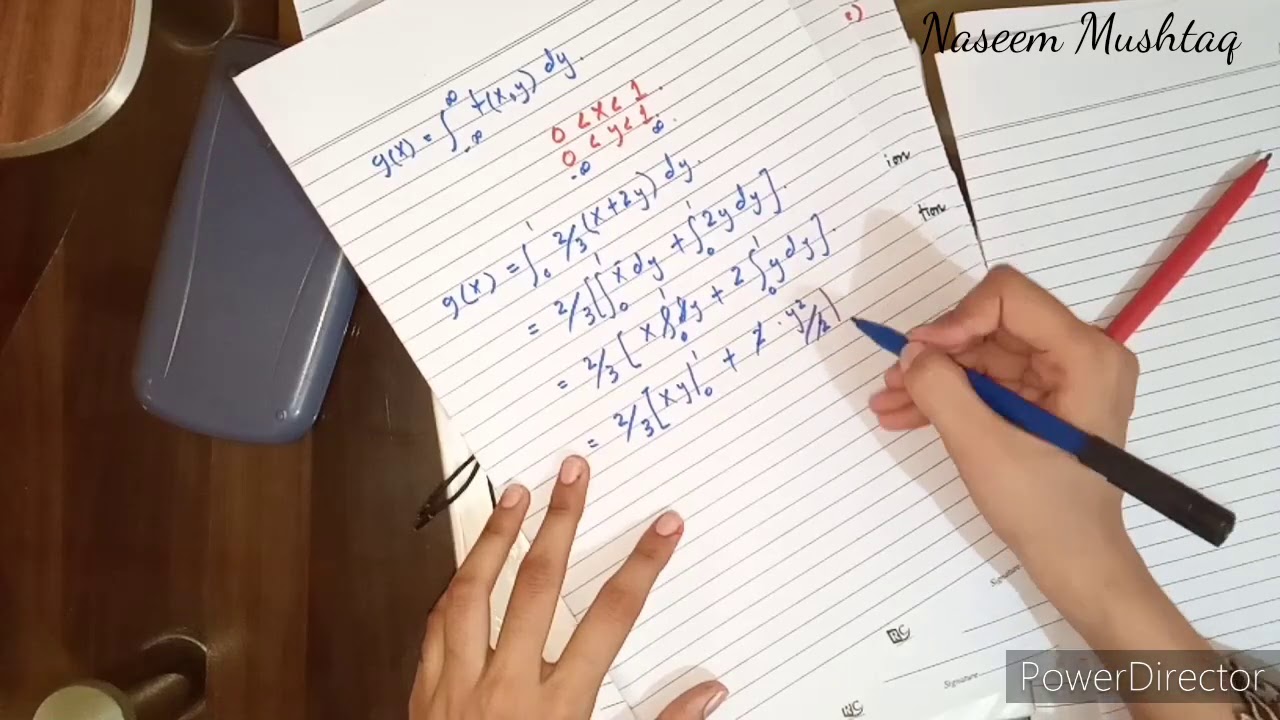 Naseem Mushtaq
e)
g(x) = ∫_{-∞}^{∞} f(x,y) dy.
0 < x < 1.
0 < y < 1.
-∞ ∞.
g(x) = ∫_0^1 2/3 (x+2y) dy.
= 2/3 [∫_0^1 x dy + ∫_0^1 2y dy].
= 2/3 [x ∫_0^1 dy + 2 ∫_0^1 y dy].
= 2/3 [xy|_0^1 + 2 · y²/2|
ion
tion
Signature
Signature
PowerDirector